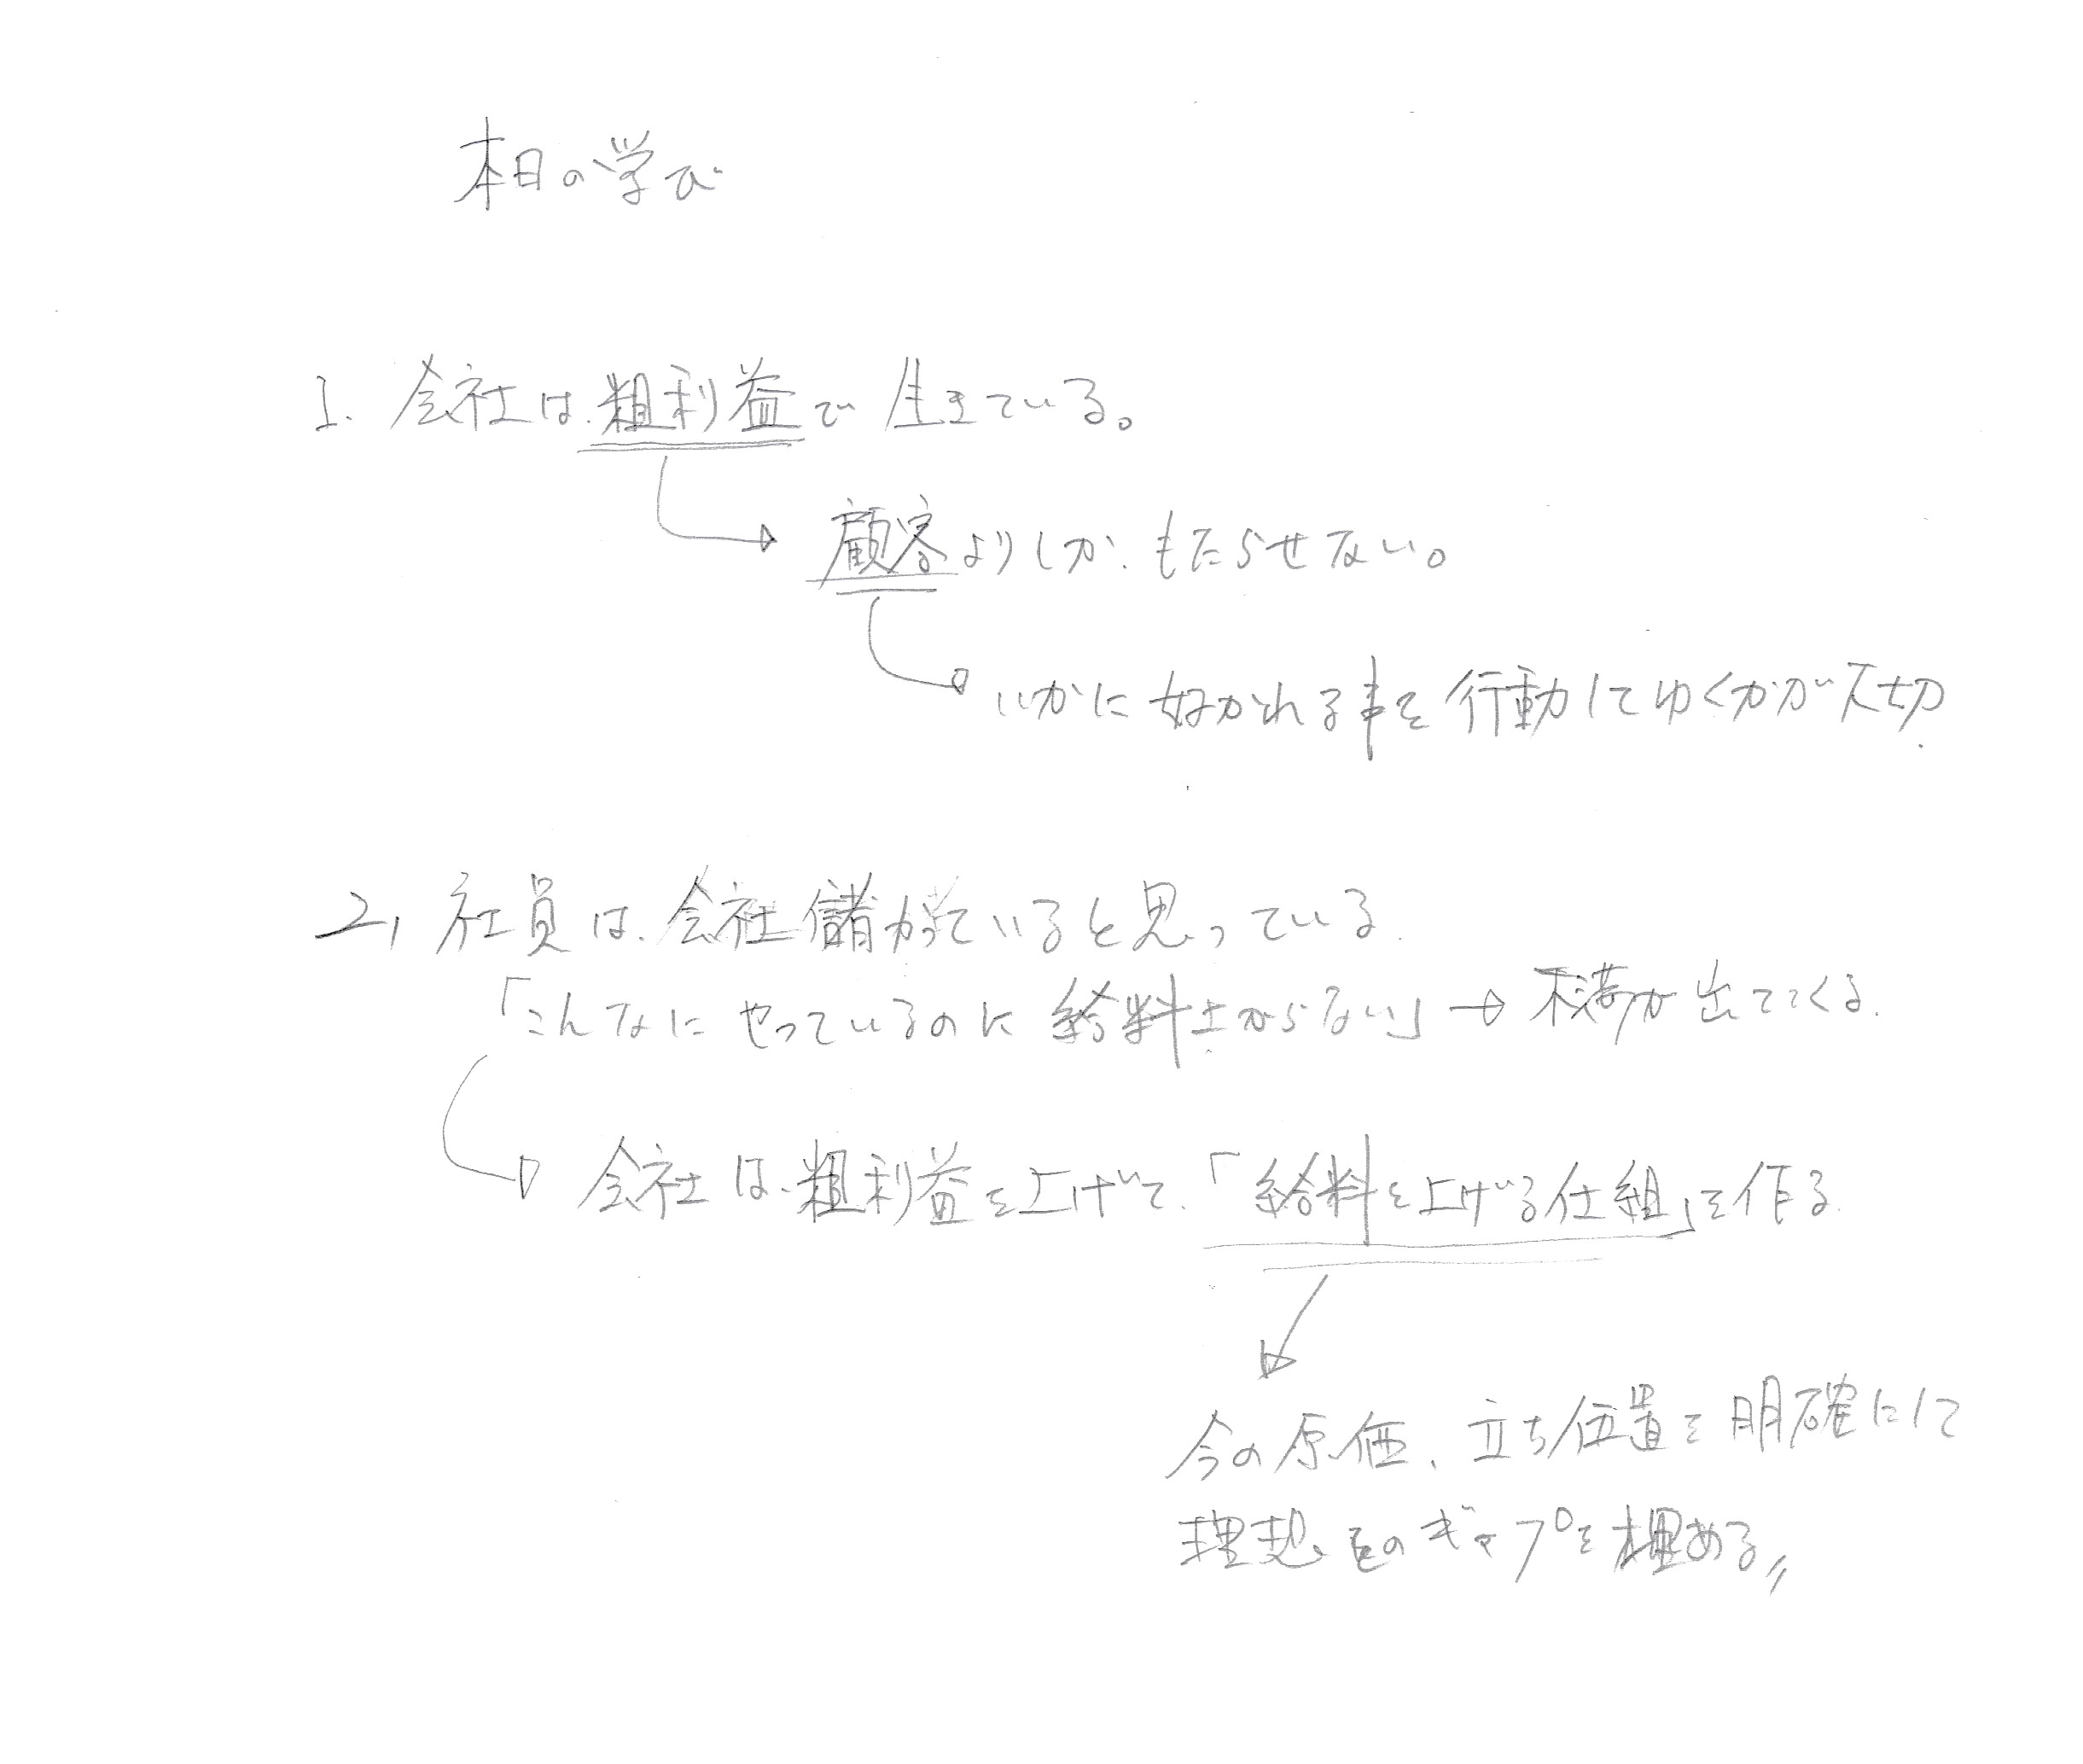 本日の学び
1. 会社は、粗利益で生きている。
顧客よりしか、もたらせない。
いかに好かれる事を行動してゆくかが大切.
2, 社員は、会社儲かっていると思っている.
「こんなにやっているのに給料上がらない」→不満が出てくる.
会社は、粗利益を上げて、「給料を上げる仕組」を作る.
今の原価、立ち位置を明確にして
理想とのギャップを埋める〃